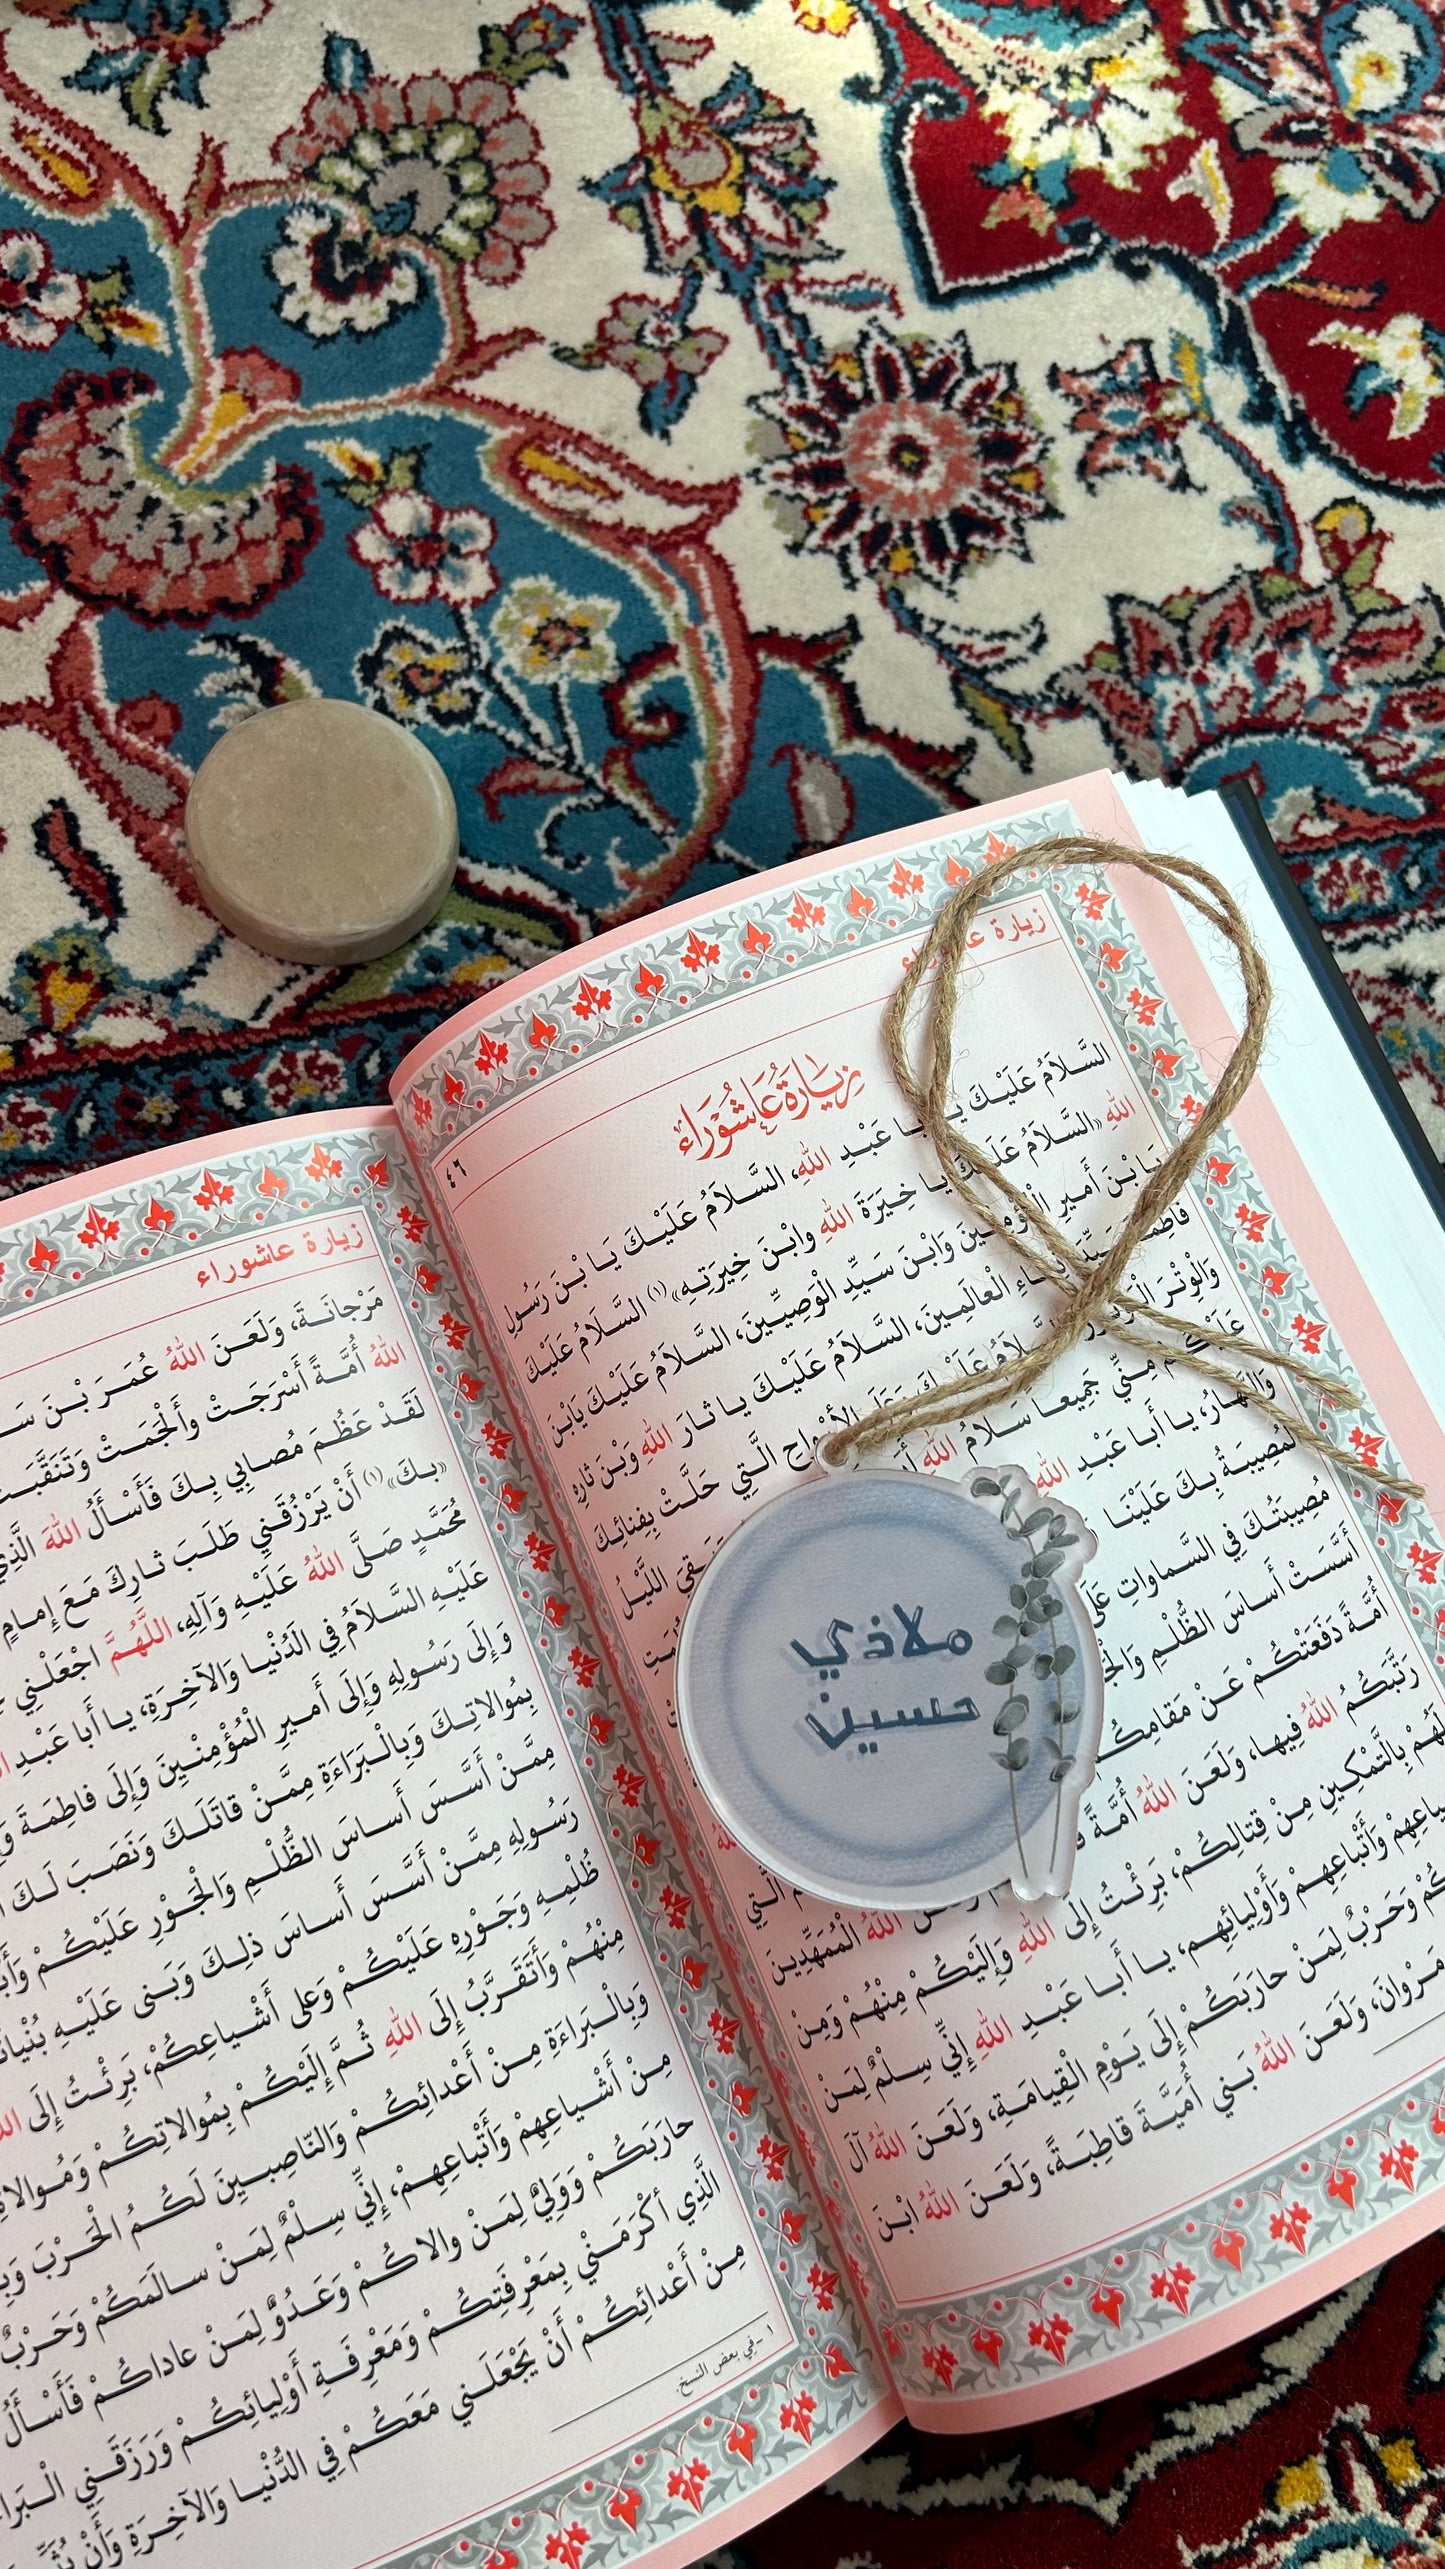 زيارة عاشوراء
زِيَارَةُ عَاشُورَاءَ
٤٦
السَّلَامُ عَلَيْكَ يَا أَبَا عَبْدِ اللهِ، السَّلَامُ عَلَيْكَ يَا بْنَ رَسُولِ
اللهِ «السَّلَامُ عَلَيْكَ يا خِيَرَةَ اللهِ وابْنَ خِيَرَتِهِ»(١) السَّلَامُ عَلَيْكَ
يَا بْنَ أَمِيرِ الْمُؤْمِنِينَ وَابْنَ سَيِّدِ الْوَصِيِّينَ، السَّلَامُ عَلَيْكَ يَابْنَ
فَاطِمَةَ سَيِّدَةِ نِسَاءِ الْعَالَمِينَ، السَّلَامُ عَلَيْكَ يا ثارَ اللهِ وَبْنَ ثارِهِ
وَالْوِتْرَ الْمَوْتُورَ السَّلَامُ عَلَيْكَ وَعَلَى الأَرْواحِ الَّتِي حَلَّتْ بِفِنائِكَ
عَلَيْكُمْ مِنِّي جَمِيعا سَلامُ اللهِ اللَّيْلُ
وَالنَّهارُ، يا أَبا عَبْدِ اللهِ
الْمُصِيبَةُ بِكَ عَلَيْنا
مُصِيبَتُكَ فِي السَّماواتِ عَلَى
أَسَّسَتْ أَساسَ الظُّلْمِ وَالْجَوْرِ
أُمَّةً دَفَعَتْكُمْ عَنْ مَقامِكُمْ
رَتَّبَكُمُ اللهُ فِيها، وَلَعَنَ اللهُ أُمَّةً الَّتِي
وَلَعَنَ اللهُ الْمُمَهِّدِينَ
لَهُمْ بِالتَّمْكِينِ مِنْ قِتالِكُمْ، بَرِئْتُ إِلَى اللهِ وَإِلَيْكُمْ مِنْهُمْ وَمِنْ
أَشْياعِهِمْ وَأَتْباعِهِمْ وَأَوْلِيائِهِم، يا أَبا عَبْدِ اللهِ إِنِّي سِلْمٌ لِمَنْ
سالَمَكُمْ وَحَرْبٌ لِمَنْ حارَبَكُمْ إِلَى يَوْمِ الْقِيامَةِ، وَلَعَنَ اللهُ آلَ
مَرْوانَ، وَلَعَنَ اللهُ بَنِي أُمَيَّةَ قاطِبَةً، وَلَعَنَ اللهُ ابْنَ
ملاذي
حسين
زيارة عاشوراء
مَرْجانَةَ، وَلَعَنَ اللهُ عُمَرَ بْنَ
اللهُ أُمَّةً أَسْرَجَتْ وأَلْجَمَتْ وَتَنَقَّبَتْ
لَقَدْ عَظُمَ مُصابِي بِكَ فَأَسْأَلُ اللهَ الَّذِي
«بِكَ»(١) أَنْ يَرْزُقَنِي طَلَبَ ثارِكَ مَعَ إِمامٍ
مُحَمَّدٍ صَلَّى اللهُ عَلَيْهِ وَآلِهِ، اللَّهُمَّ اجْعَلْنِي
عَلَيْهِ السَّلامُ فِي الدُّنْيا وَالآخِرَةِ، يا أَبا عَبْدِ
وَإِلَى رَسُولِهِ وَإِلَى أَمِيرِ الْمُؤْمِنِينَ وَإِلَى فاطِمَةَ
بِمُوالاتِكَ وَبِالْبَرَاءَةِ مِمَّنْ قاتَلَكَ وَنَصَبَ لَكَ
مِمَّنْ أَسَّسَ أَساسَ الظُّلْمِ وَالْجَوْرِ عَلَيْكُمْ
رَسُولِهِ مِمَّنْ أَسَّسَ أَساسَ ذلِكَ وَبَنى عَلَيْهِ بُنْيانَهُ
ظُلْمِهِ وَجَوْرِهِ عَلَيْكُمْ وَعلى أَشْياعِكُمْ، بَرِئْتُ إِلَى
مِنْهُمْ وَأَتَقَرَّبُ إِلَى اللهِ ثُمَّ إِلَيْكُمْ بِمُوالاتِكُمْ
وَبِالْبَرَاءَةِ مِنْ أَعْدائِكُمْ وَالنّاصِبِينَ لَكُمُ الْحَرْبَ
مِنْ أَشْياعِهِمْ وَأَتْباعِهِمْ، إِنِّي سِلْمٌ لِمَنْ سالَمَكُمْ وَحَرْبٌ
حارَبَكُمْ وَوَلِيٌّ لِمَنْ والاكُمْ وَعَدُوٌّ لِمَنْ عاداكُمْ فَأَسْأَلُ
الَّذِي أَكْرَمَنِي بِمَعْرِفَتِكُمْ وَمَعْرِفَةِ أَوْلِيائِكُمْ وَرَزَقَنِي
مِنْ أَعْدائِكُمْ أَنْ يَجْعَلَنِي مَعَكُمْ فِي الدُّنْيا وَالآخِرَةِ وَأَنْ
١-في بعض النسخ.